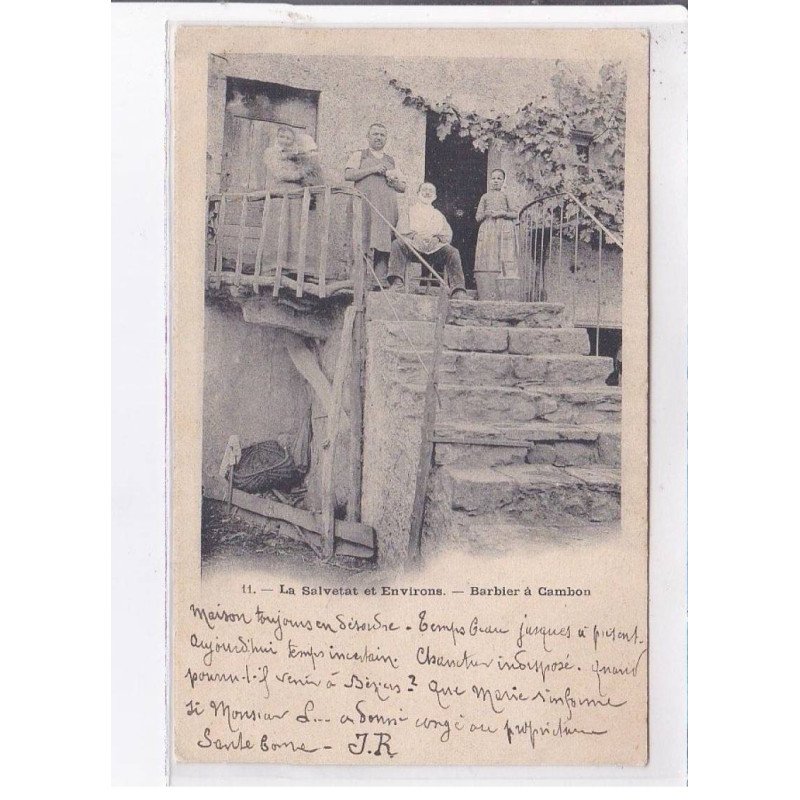 11. — La Salvetat et Environs. — Barbier à Cambon
Maison toujours en désordre. Temps beau jusques à présent.
Aujourd'hui temps incertain. Chanteur indisposé. Quand
pourra-t-il venir à Béziers? Que Marie s'informe
si Monsieur L... a donné congé au propriétaire
Santé bonne — J.R